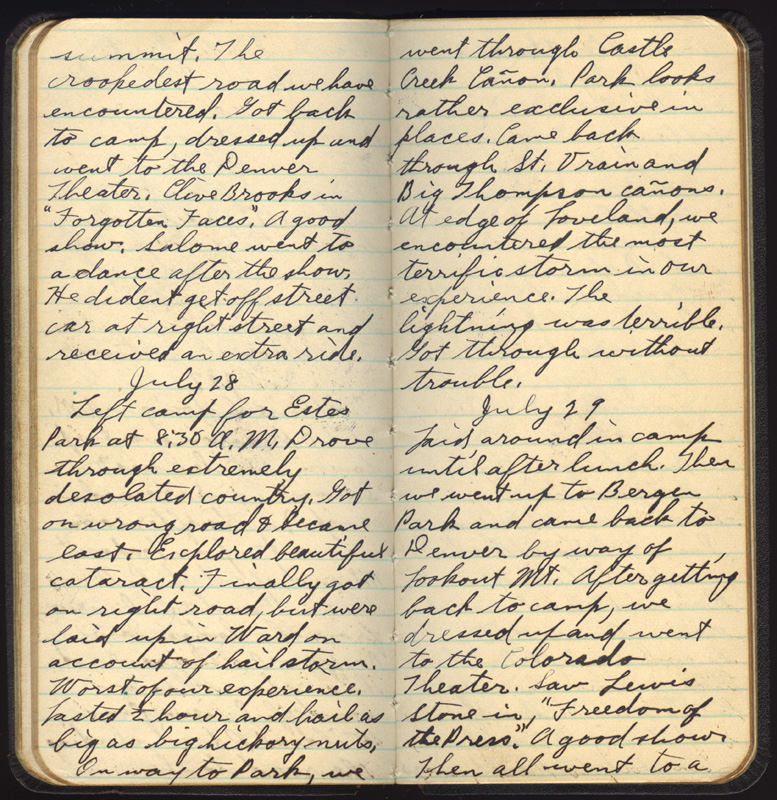 summit. The
crookedest road we have
encountered. Got back
to camp, dressed up and
went to the Denver
Theater. Clive Brooks in
"Forgotten Faces". A good
show. Salome went to
a dance after the show.
He dident get off street
car at right street and
received an extra ride.
July 28
Left camp for Estes
Park at 8:30 A.M. Drove
through extremely
desolated country. Got
on wrong road & became
east. Explored beautiful
cataract. Finally got
on right road, but were
laid up in Ward on
account of hail storm.
Worst of our experience.
Lasted ½ hour and hail as
big as big hickory nuts.
On way to Park, we
went through Castle
Creek Cañon. Park looks
rather exclusive in
places. Came back
through St. Vrain and
Big Thompson cañons.
At edge of Loveland, we
encountered the most
terrific storm in our
experience. The
lightning was terrible.
Got through without
trouble.
July 29
Laid around in camp
until after lunch. Then
we went up to Bergen
Park and came back to
Denver by way of
Lookout Mt. After getting
back to camp, we
dressed up and went
to the Colorado
Theater. Saw Lewis
Stone in, "Freedom of
the Press". A good show.
Then all went to a